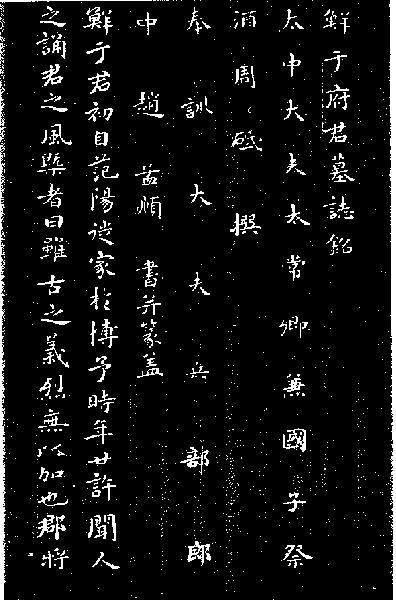 鮮于府君墓誌銘
太中大夫太常卿兼國子祭
酒周砥撰
奉訓大夫兵部郎
中趙孟頫書并篆盖
鮮于君初自范陽徙家於博予時年廿許聞人
之誦君之風槩者曰雖古之義烈無以加也郡將